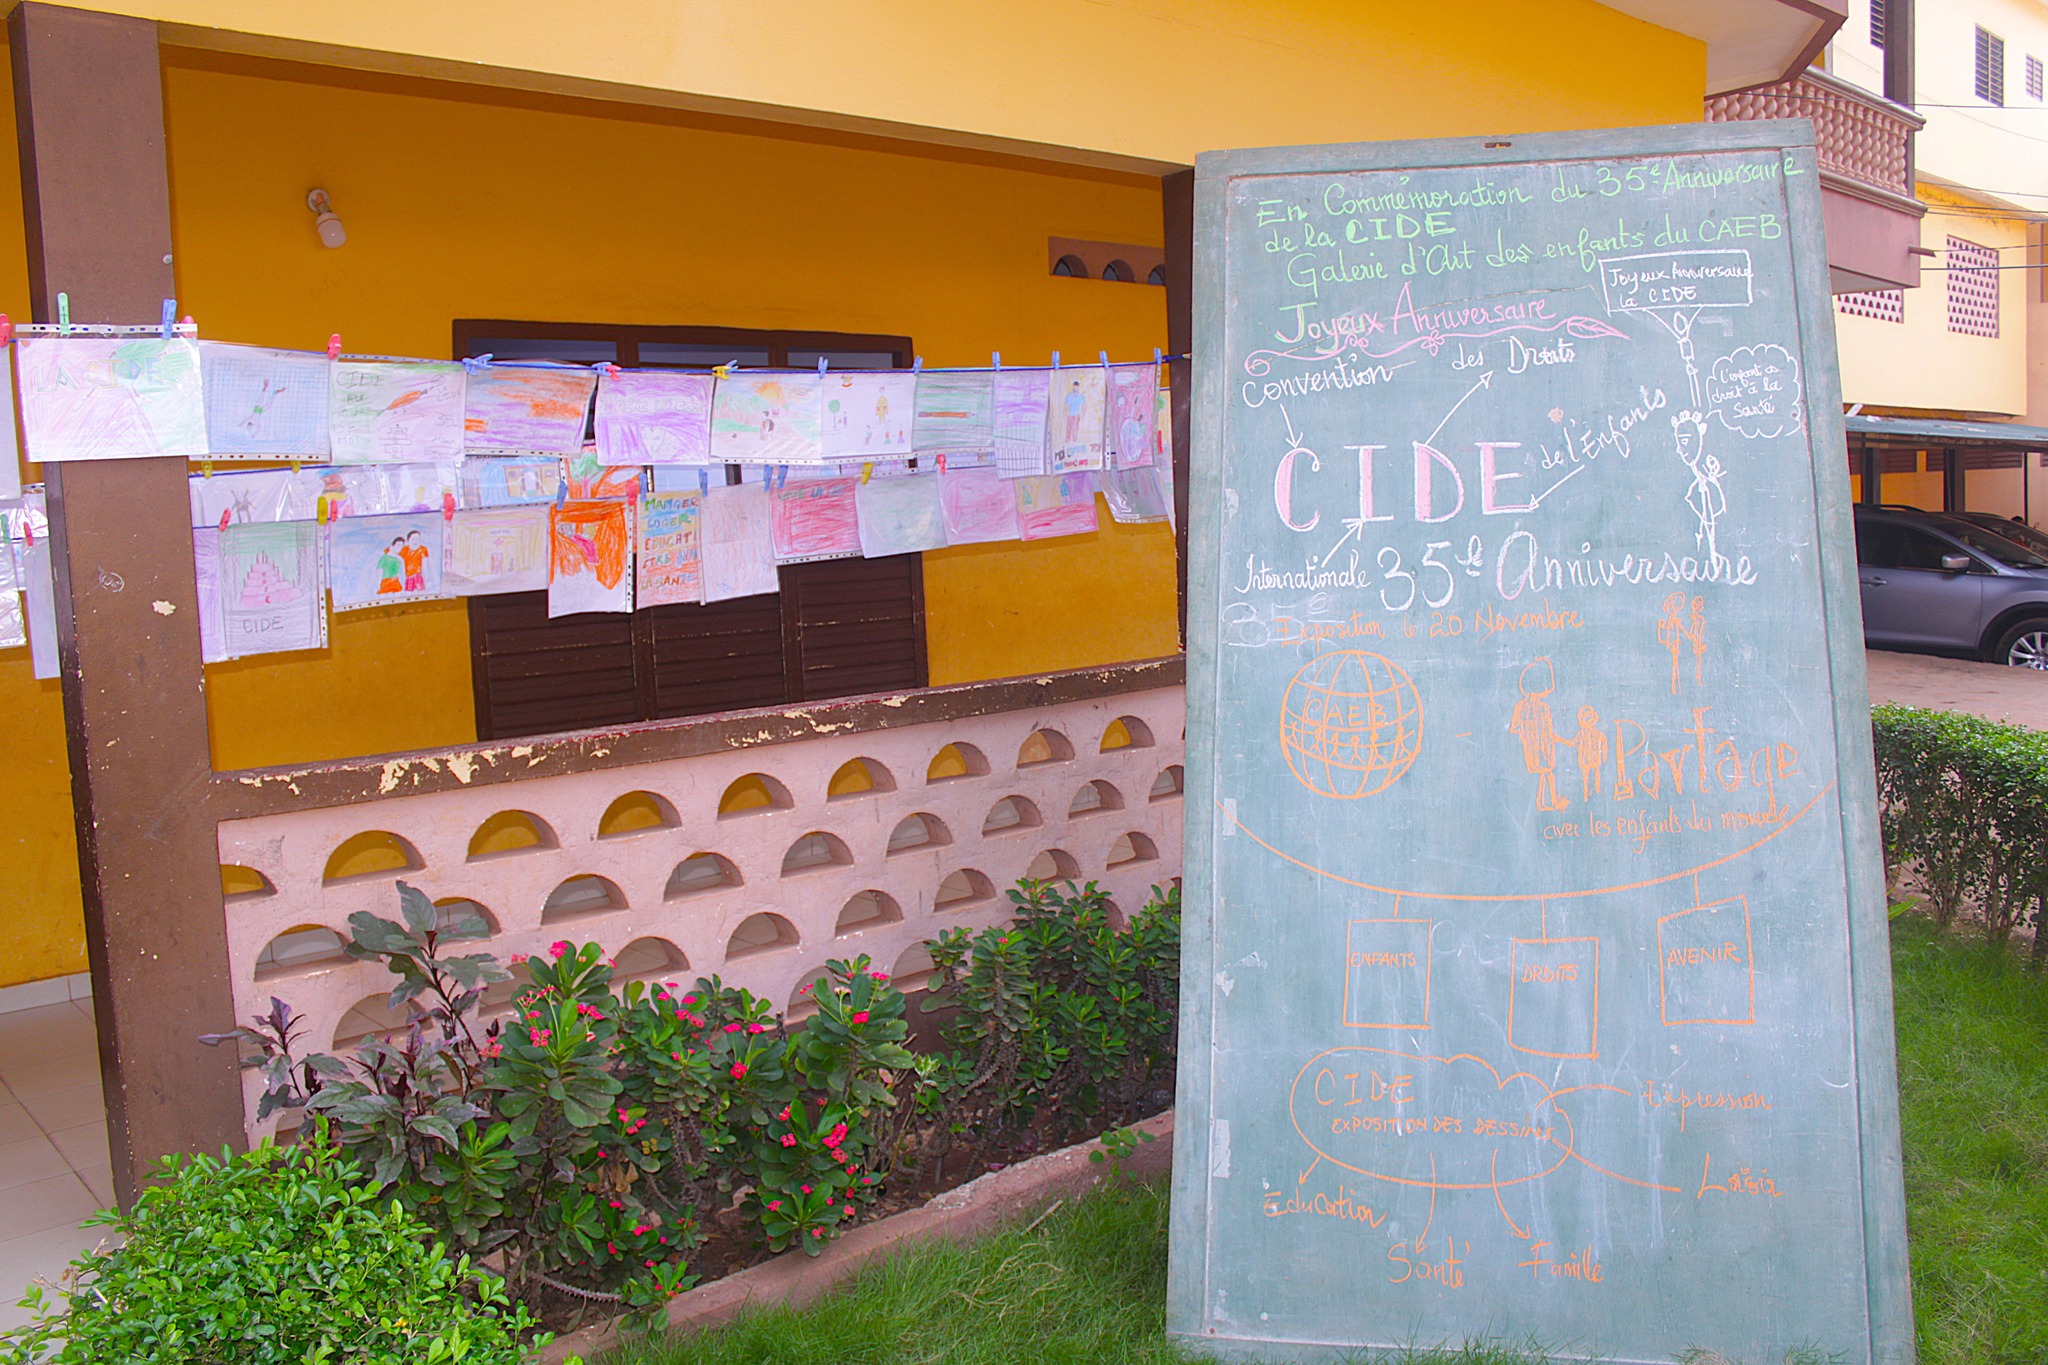 En Commémoration du 35e Anniversaire
de la CIDE
Galerie d'Art des enfants du CAEB
Joyeux Anniversaire
Joyeux Anniversaire
la CIDE
Convention
des Droits
l'enfant as
droit à la
Santé
de l'Enfants
CIDE
Internationale
35è Anniversaire
35e
Exposition le 20 Novembre
CAEB
Partage
avec les enfants du monde
ENFANTS
DROITS
AVENIR
CIDE
EXPOSITION DES DESSINS
Expression
Loisir
Education
Santé
Famille
LA CIDE
CIDE
MANGER
LOGER
LA SANTE
CIDE